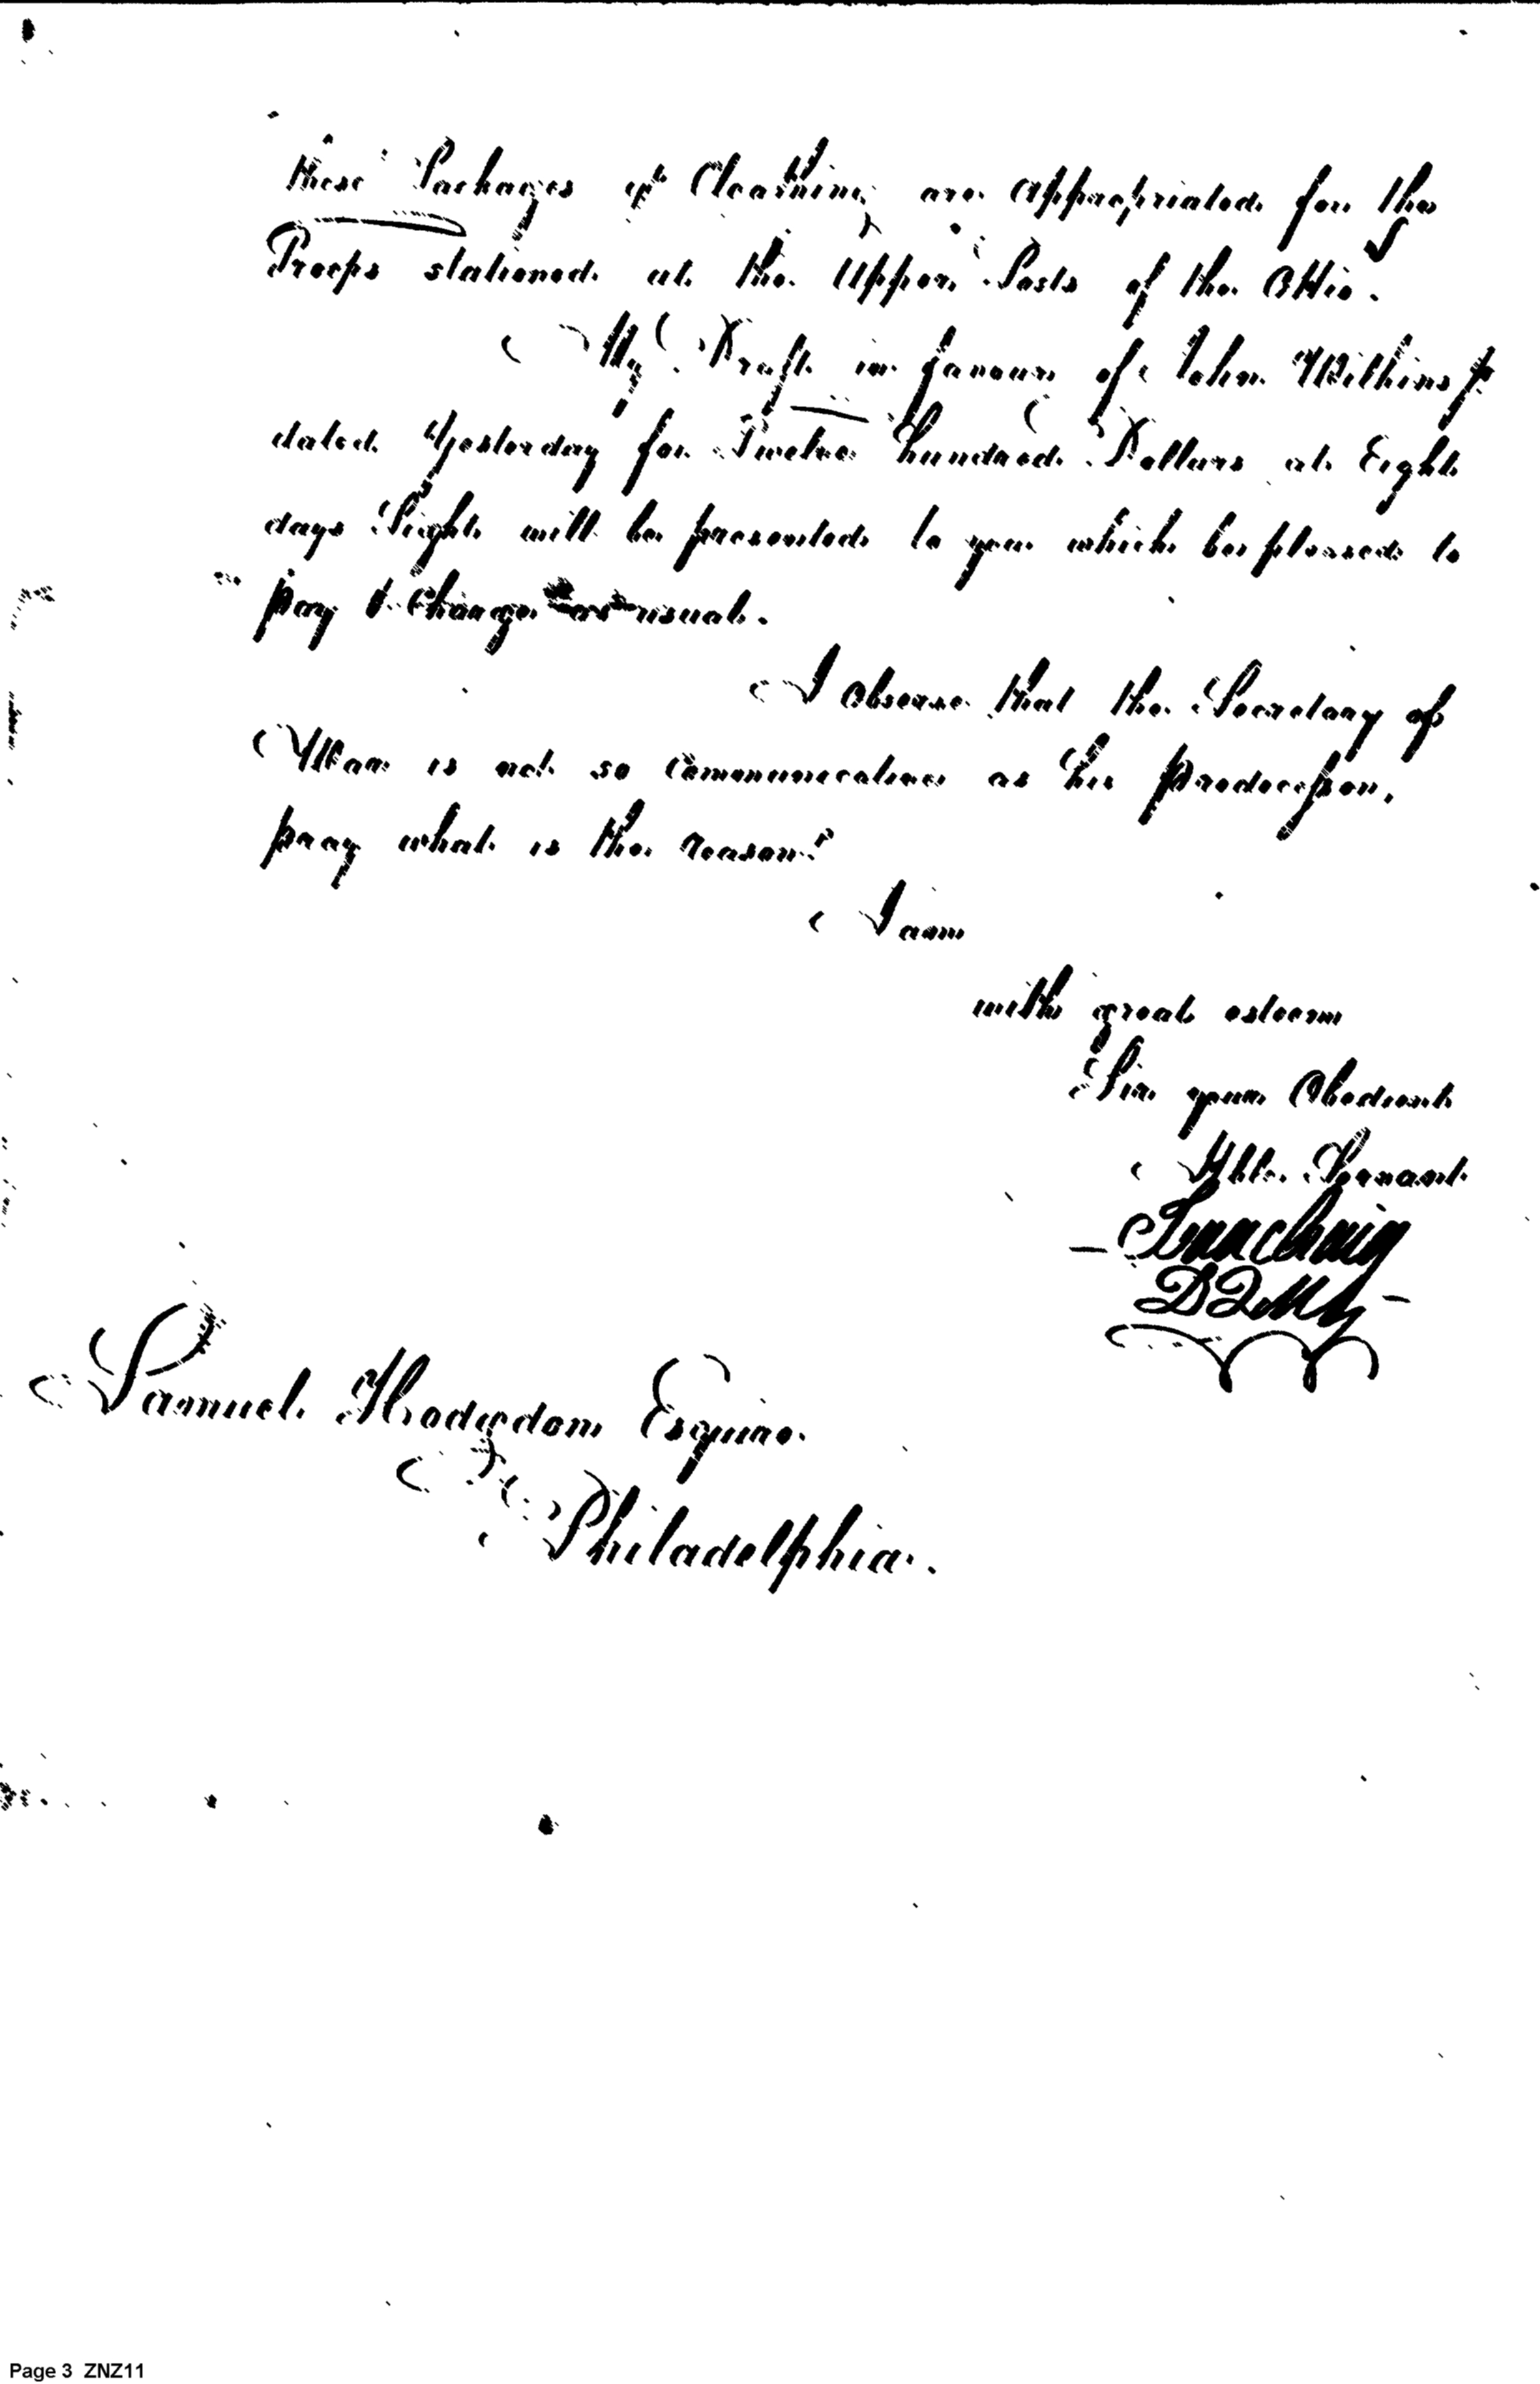 these Packages of Cloathing are appropriated for the
Troops stationed at the Upper Posts of the Ohio.
My Draft in favour of John Wilkins Jr
dated Yesterday for Twelve hundred Dollars at Eight
days Sight will be presented to you which be pleased to
pay & Charge as usual.
I observe that the Secretary of
War is not so Communicative as his predecessor,
pray what is the reason?
I am
with great esteem
Sir your Obedient
Hble. Servant
Isaac Craig
DQMG
Samuel Hodgdon Esquire.
Philadelphia.
Page 3 ZNZ11